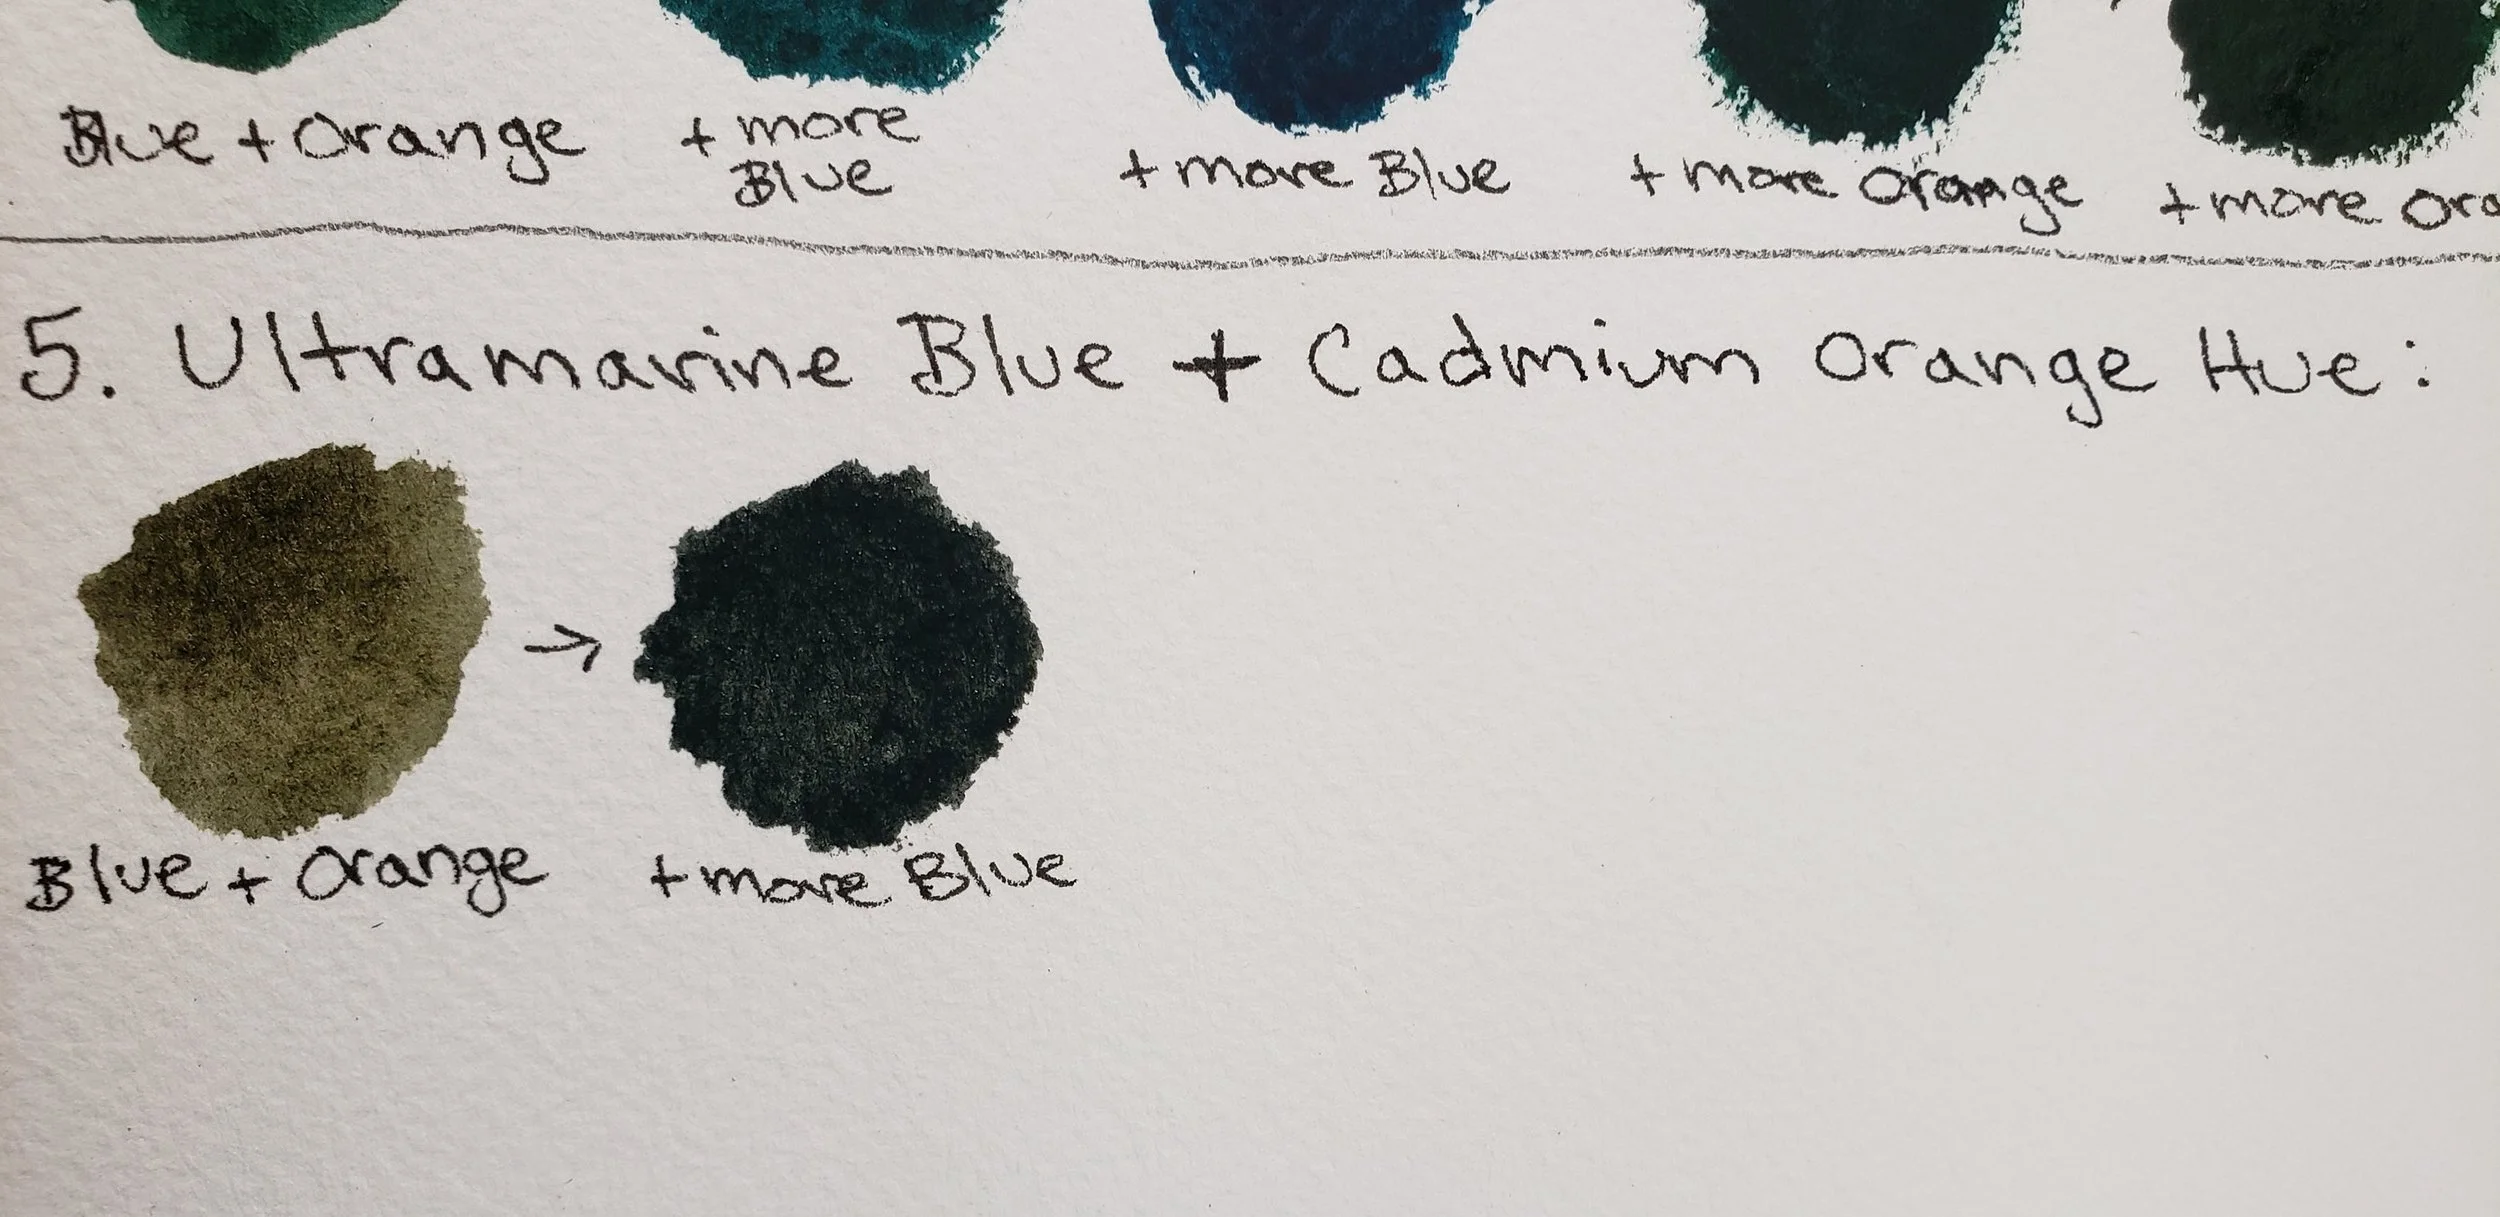 Blue + Orange
+ more
Blue
+ more Blue
+ more Orange
+ more Ora
5. Ultramarine Blue + Cadmium Orange Hue:
→
Blue + Orange
+ more Blue